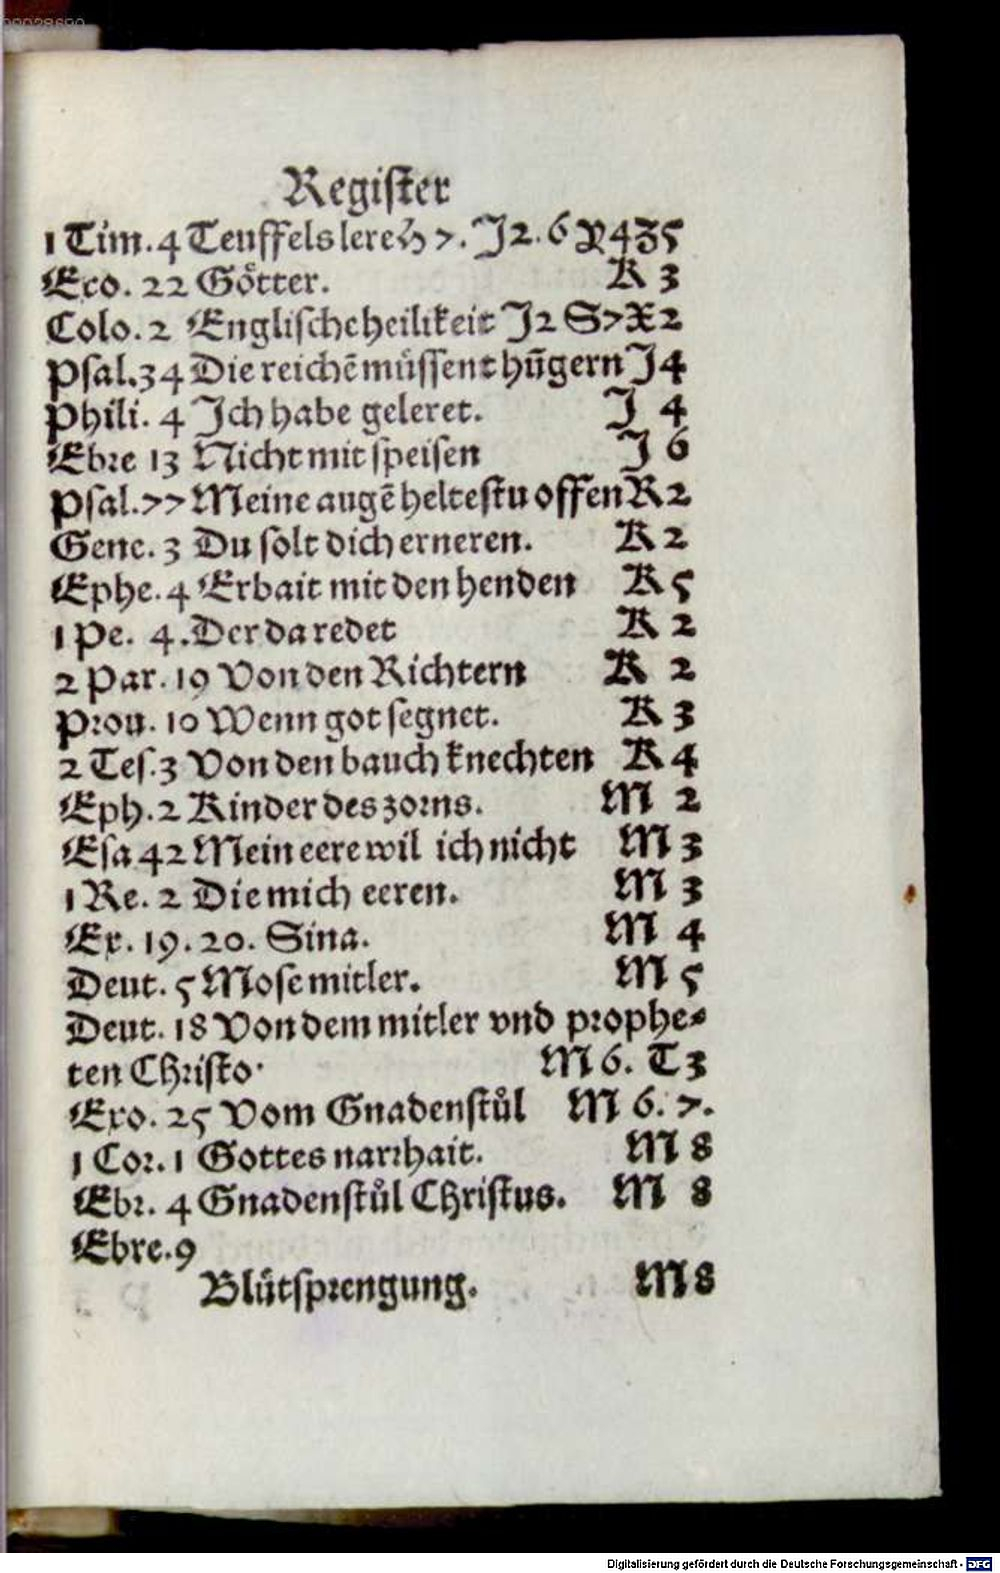 00028690
Register
1 Tim. 4 Teuffels lere H 7. J 2. 6 P 4 Z 5
Exo. 22 Götter. K 3
Colo. 2 Englische heilikeit J 2 S 7 X 2
Psal. 34 Die reichẽ müssent hũgern J 4
Phili. 4 Ich habe geleret. J 4
Ebre 13 Nicht mit speisen J 6
Psal. 77 Meine augẽ heltestu offen K 2
Gene. 3 Du solt dich erneren. K 2
Ephe. 4 Erbait mit den henden K 5
1 Pe. 4. Der da redet K 2
2 Par. 19 Von den Richtern K 2
Prou. 10 Wenn got segnet. K 3
2 Tes. 3 Von den bauch knechten K 4
Eph. 2 Kinder des zorns. M 2
Esa 42 Mein eere wil ich nicht M 3
1 Re. 2 Die mich eeren. M 3
Ex. 19. 20. Sina. M 4
Deut. 5 Mose mitler. M 5
Deut. 18 Von dem mitler vnd prophe⸗
ten Christo· M 6. T 3
Exo. 25 Vom Gnadenstůl M 6. 7.
1 Cor. 1 Gottes narrhait. M 8
Ebr. 4 Gnadenstůl Christus. M 8
Ebre. 9
Blůtsprengung. M 8
Digitalisierung gefördert durch die Deutsche Forschungsgemeinschaft - DFG